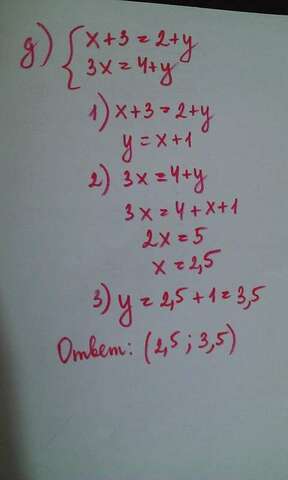 д) { x+3=2+y
3x=4+y
1) x+3=2+y
y=x+1
2) 3x=4+y
3x=4+x+1
2x=5
x=2,5
3) y=2,5+1=3,5
Ответ: (2,5; 3,5)